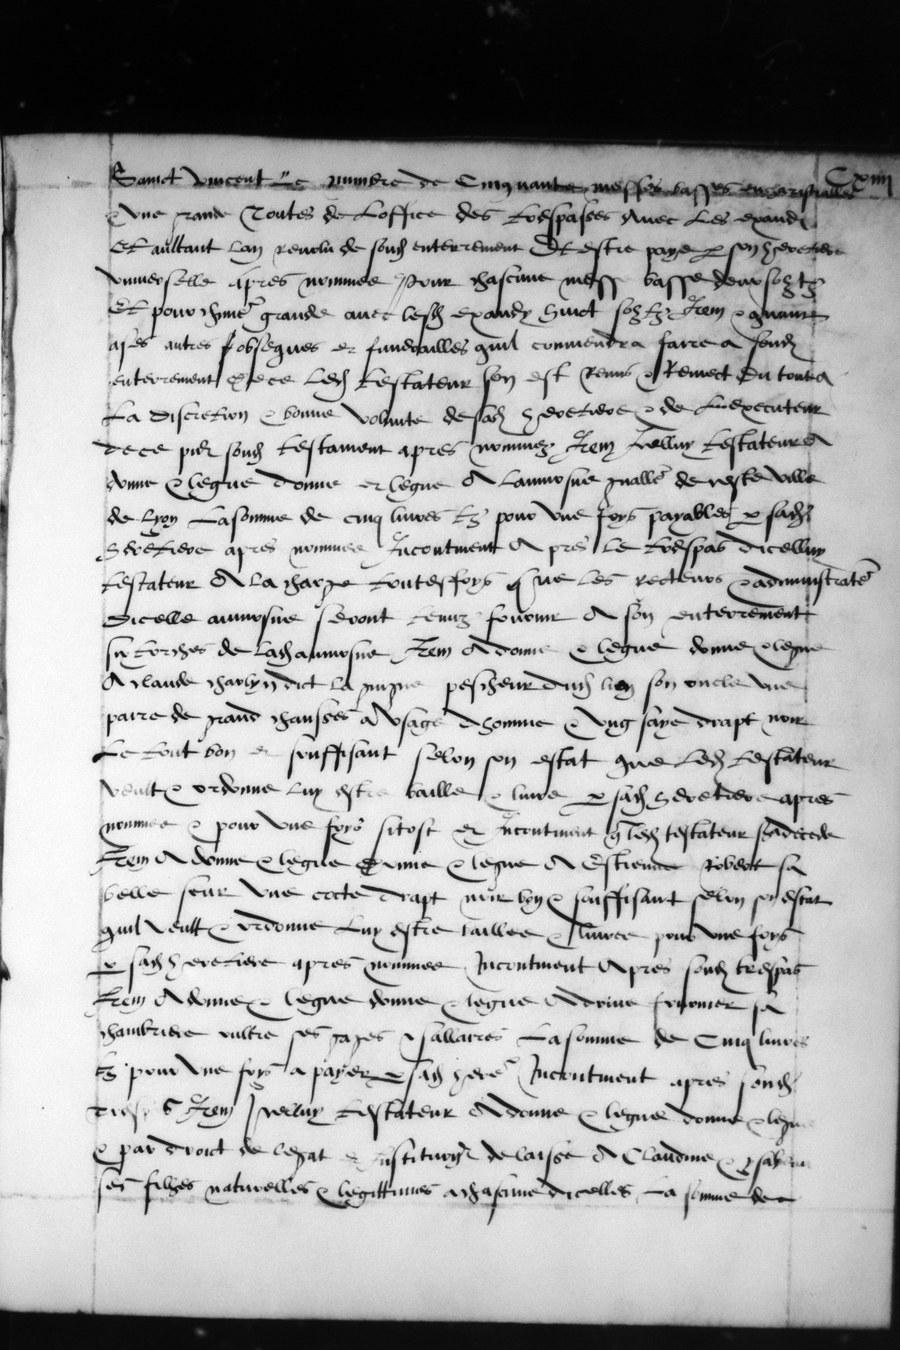 Cxiiii
Sainct Vincent Le numbre de Cinquante messes basses
& une grande toutes de Loffice des trespasses Avec Les exaudi
Et aultant lan revolu de sond enterrement Et estre paye p son heretiere
universelle apres nommee Pour chascune messe basse deux solz tz
Et pour grande avec lesd exaudy huict solz tz Item & quant
aes autres obseques et funerailles quil conviendra faire a sond
enterrement de ce Led testateur sen est Remis & Remect Du tout a
La Discretion & bonne volunte de sad heretiere & de Lexecuteur
de ce pnt sond testament apres nomme Item Icelluy testateur a
donne & legue donne et legue A Laumosne gnalle de ceste ville
de Lyon La somme de cinq livres tz pour une foys payables p sad
heretiere apres nommee Incontinent Apres Le trespas dicelluy
testateur A La charge toutesfoys que Les recteurs & administrate
dicelle aumosne seront tenuz fournir A son enterrement
six torches de lad aumosne Item A donne & legue donne & legue
A claude dict La pescheur dud lieu son oncle une
paire de grand chausses a usage dhomme & ung saye drapt noir
Le tout bon et souffisant selon son estat que Led testateur
veult & ordonne Luy estre baille & livre p sad heretiere apres
nommee & pour une foys sitost et Incontinent q led testateur sera decede
Item A donne & legue donne & legue A Estiennette Robert sa
belle seur une cotte drapt noir bon & souffisant selon son estat
quil veult & ordonne Luy estre baillee & livree pour une foys
p sad heretiere apres nommee Incontinent Apres sond trespas
Item A donne & legue donne & legue A sa
chambriere oultre ses gages & sallaires La somme de Cinq livres
tz pour une foys a payer p sad here Incontinent apres sond
tresp Item Icelluy testateur A donne & legue donne & legue
& par droict de legat et Institution delaisse A Claudine &
ses filhes naturelles & legittimes a chascune dicelles La somme de